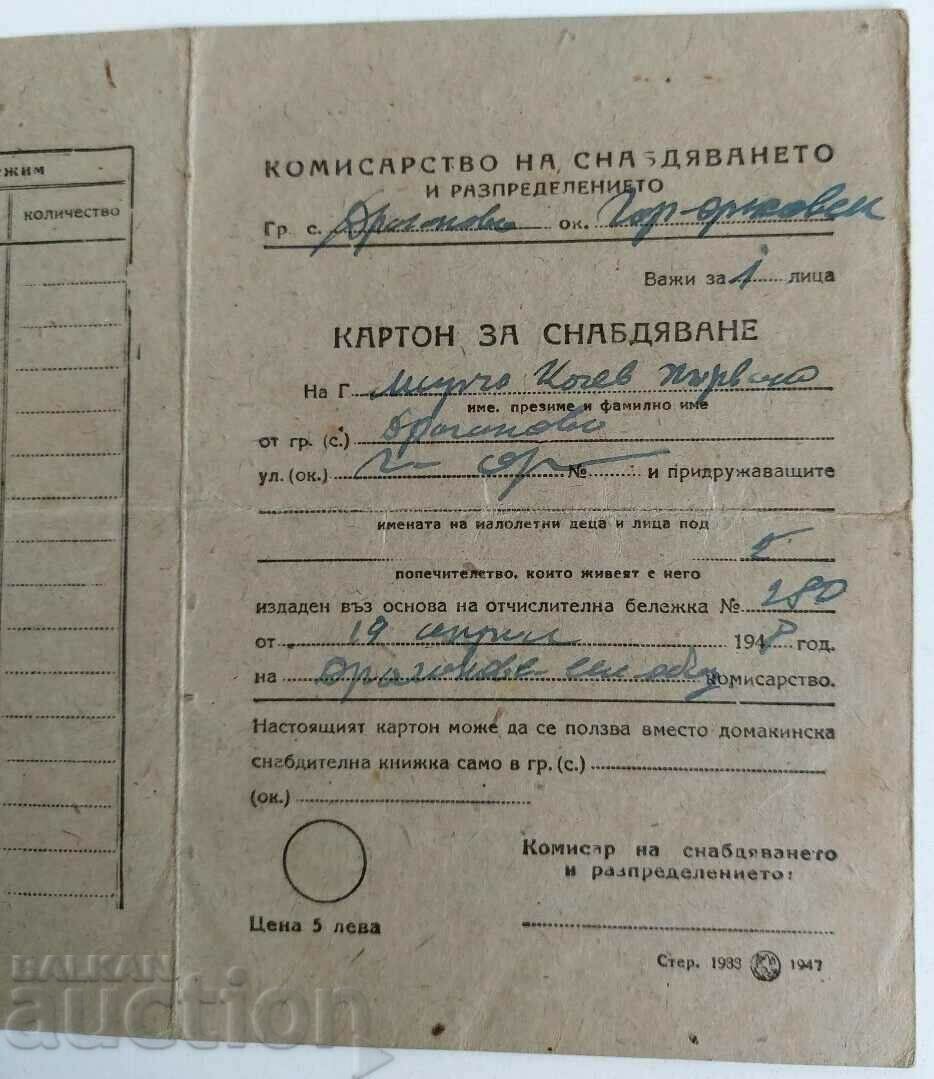 жим
количество
КОМИСАРСТВО НА СНАБДЯВАНЕТО
И РАЗПРЕДЕЛЕНИЕТО
Гр с. Драганово ок. Гор-оряховск
Важи за 1 лица
КАРТОН ЗА СНАБДЯВАНЕ
На Г. Минчо
име, презиме и фамилно име
от гр. (с.) Драганово
ул. (ок.) № и придружаващите
имената на малолетни деца и лица под
попечителство, които живеят с него
издаден въз основа на отчислителна бележка № 280
от 19 април 1948 год.
на Драгановско сел. общ. комисарство.
Настоящият картон може да се ползва вместо домакинска
снабдителна книжка само в гр. (с.)
(ок.)
Комисар на снабдяването
и разпределението:
Цена 5 лева
Стер. 1933 1947
BALKAN
auction